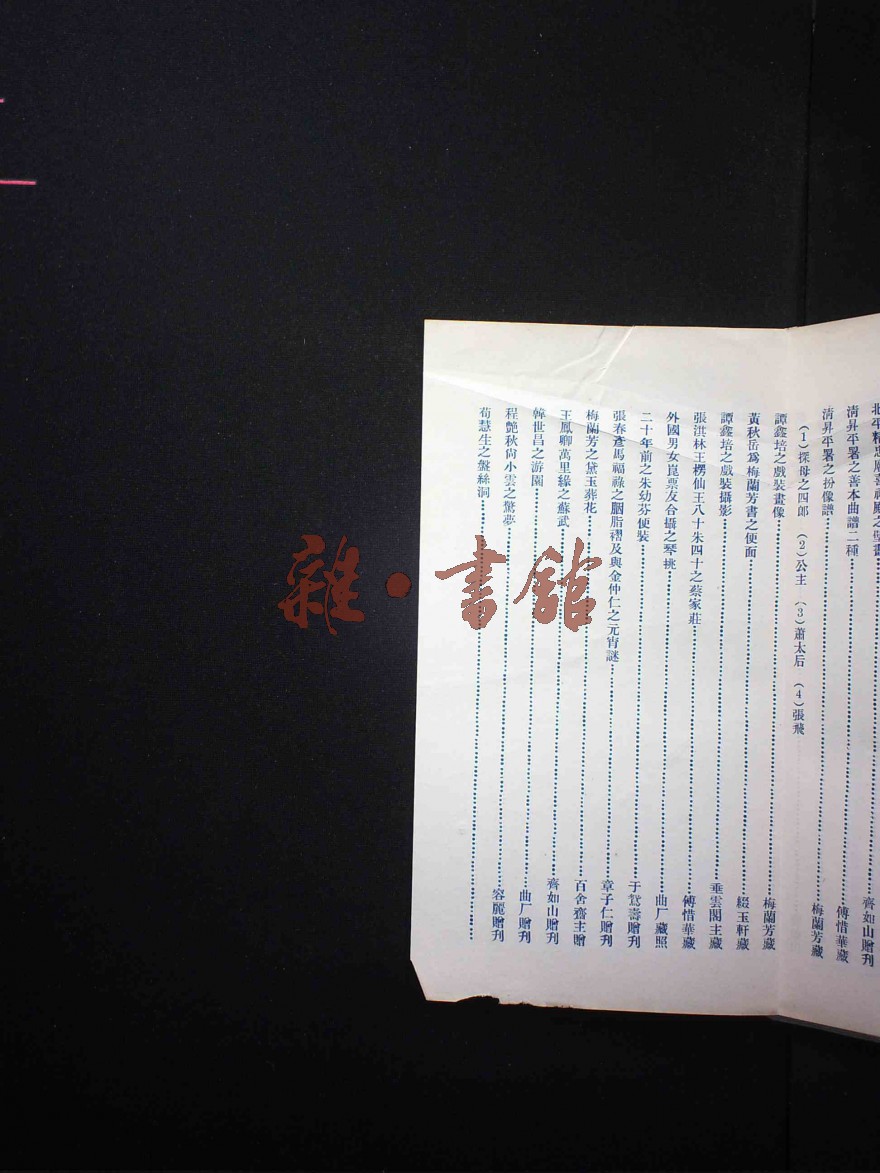 北平精忠廟喜神殿之壁畫……齊如山贈刊
清昇平署之善本曲譜二種……傅惜華藏
清昇平署之扮像譜……梅蘭芳藏
(1)探母之四郎 (2)公主 (3)蕭太后 (4)張飛
譚鑫培之戲裝畫像……梅蘭芳藏
黃秋岳爲梅蘭芳書之便面……綴玉軒藏
譚鑫培之戲裝攝影……垂雲閣主藏
張淇林王楞仙王八十朱四十之蔡家莊……傅惜華藏
外國男女崑票友合攝之琴挑……曲厂藏照
二十年前之朱幼芬便裝……于壽贈刊
張春彥馬福祿之胭脂褶及與金仲仁之元宵謎……章子仁贈刊
梅蘭芳之黛玉葬花……百舍齋主贈
王鳳卿萬里緣之蘇武……齊如山贈刊
韓世昌之游園……曲厂贈刊
程艷秋尙小雲之驚夢……容麗贈刊
荀慧生之盤絲洞……
雜·書館